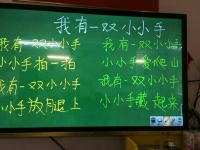 我有一双小小手
我有一双小小手
小小手拍一拍
我有一双小小手
小小手放腿上
我有一双小小手
小小手爬山
我有一双小小手
小小手藏起来